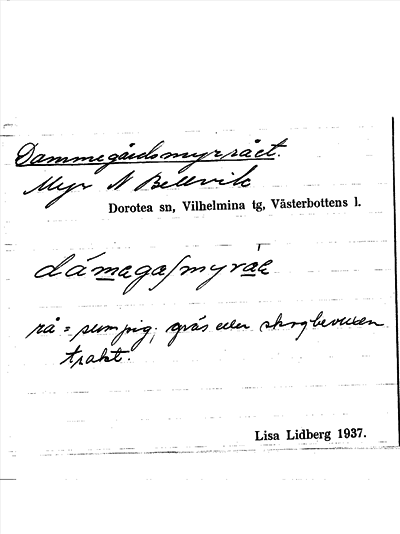 Dammegårdsmyrrået.
Myr N Bellvik
Dorotea sn, Vilhelmina tg, Västerbottens l.
dámaga/myrå̀e
rå = sumpig, gräs eller skogbevuxen
trakt.
Lisa Lidberg 1937.